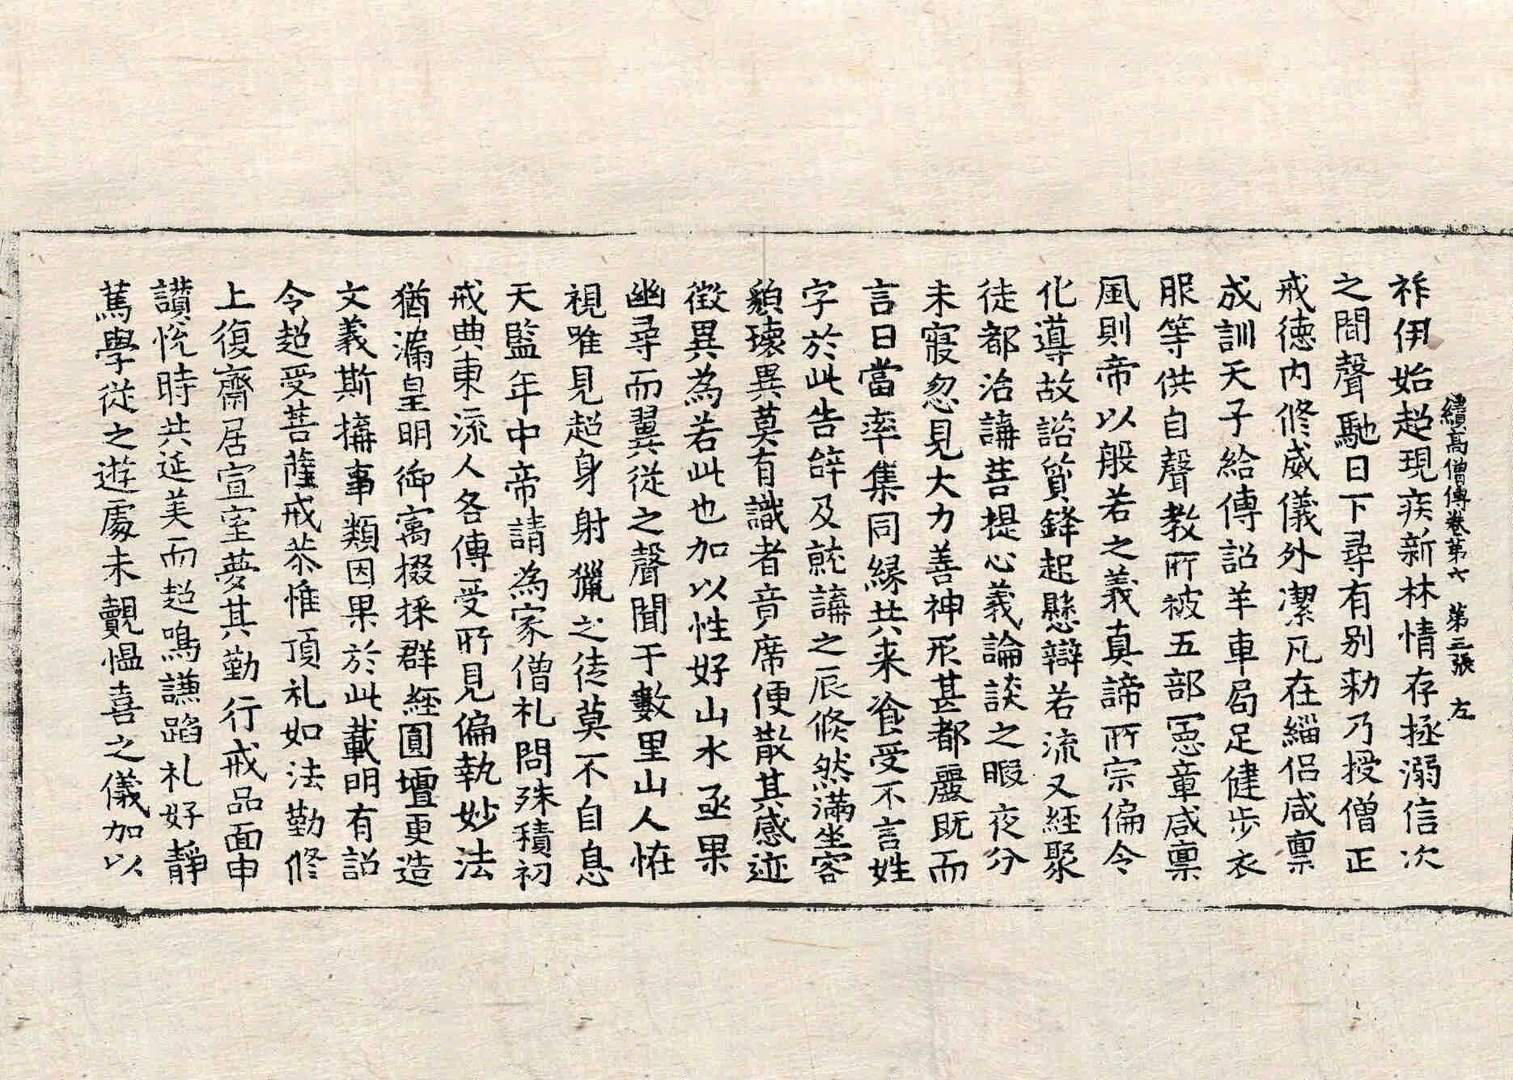 續高僧傳卷第六 第三張 左
祚伊始超現疾新林情存拯溺信次
之間聲馳日下尋有别勑乃授僧正
戒德内修威儀外潔凡在緇侣咸禀
成訓天子給傳詔羊車局足健步衣
服等供自聲教所被五部憲章咸禀
風則帝以般若之義真諦所宗偏令
化導故諮質鋒起懸辯若流又經聚
徒都治講菩提心義論談之暇夜分
未寢忽見大力善神形甚都麗既而
言曰當率集同縁共来飡受不言姓
字於此告辝及就講之辰倏然滿坐容
貌瓌異莫有識者竟席便散其感迹
徵異為若此也加以性好山水亟果
幽尋而翼從之聲聞于數里山人恠
視唯見超身射獵之徒莫不自息
天監年中帝請為家僧礼問殊積初
戒典東流人各傳受所見偏執妙法
猶漏皇明御寓掇採群經圓壇更造
文義斯構事類因果於此載明有詔
令超受菩薩戒恭惟頂礼如法勤修
上復齋居宣室夢其勤行戒品面申
讃恱時共延美而超鳴謙蹈礼好靜
篤學從之遊處未覿愠喜之儀加以